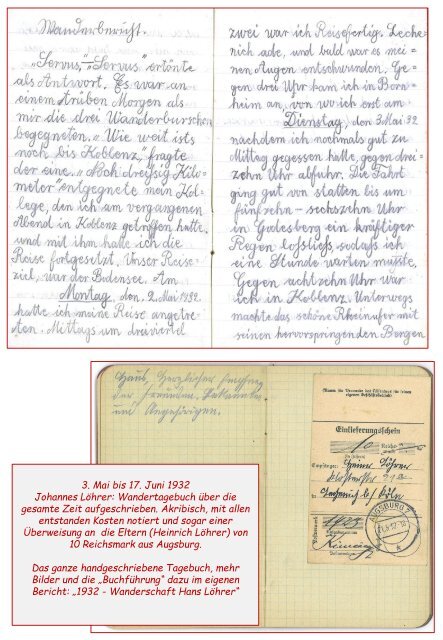 Wanderbericht.
„Servus," „Servus," ertönte
als Antwort. Es war an
einem trüben Morgen als
mir die drei Wanderburschen
begegneten. „Wie weit ists
noch bis Koblenz," fragte
der eine. „Noch dreißig Kilo-
meter entgegnete mein Kol-
lege, den ich am vergangenen
Abend in Koblenz getroffen hatte,
und mit ihm hatte ich die
Reise fortgesetzt. Unser Reise-
ziel, war der Bodensee. Am
Montag, den 2. Mai 1932.
hatte ich meine Reise angetre-
ten. Mittags um dreiviertel
zwei war ich Reisefertig. Leche-
nich ade, und bald war es mei-
nen Augen entschwunden. Ge-
gen drei Uhr kam ich in Born-
heim an, von wo ich erst am
Dienstag, den 3. Mai 32
nachdem ich nochmals gut zu
Mittag gegessen hatte, gegen drei-
zehn Uhr abfuhr. Die Fahrt
ging gut von statten bis um
fünfzehn – sechszehn Uhr
in Godesberg ein kräftiger
Regen losließ, sodaß ich
eine Stunde warten mußte.
Gegen achtzehn Uhr war
ich in Koblenz. Unterwegs
machte das schöne Rheinufer mit
seinen hervorspringenden Bergen
Haus, Herzlicher Empfang
der Freunden, Bekannten
und Angehörigen.
Einlieferungsschein
10 Reichs
Empfänger: Heinr. Löhrer
in Lechenich b/ Köln
AUGSBURG 2
3. Mai bis 17. Juni 1932
Johannes Löhrer: Wandertagebuch über die
gesamte Zeit aufgeschrieben. Akribisch, mit allen
entstanden Kosten notiert und sogar einer
Überweisung an die Eltern (Heinrich Löhrer) von
10 Reichsmark aus Augsburg.
Das ganze handgeschriebene Tagebuch, mehr
Bilder und die „Buchführung" dazu im eigenen
Bericht: „1932 - Wanderschaft Hans Löhrer"